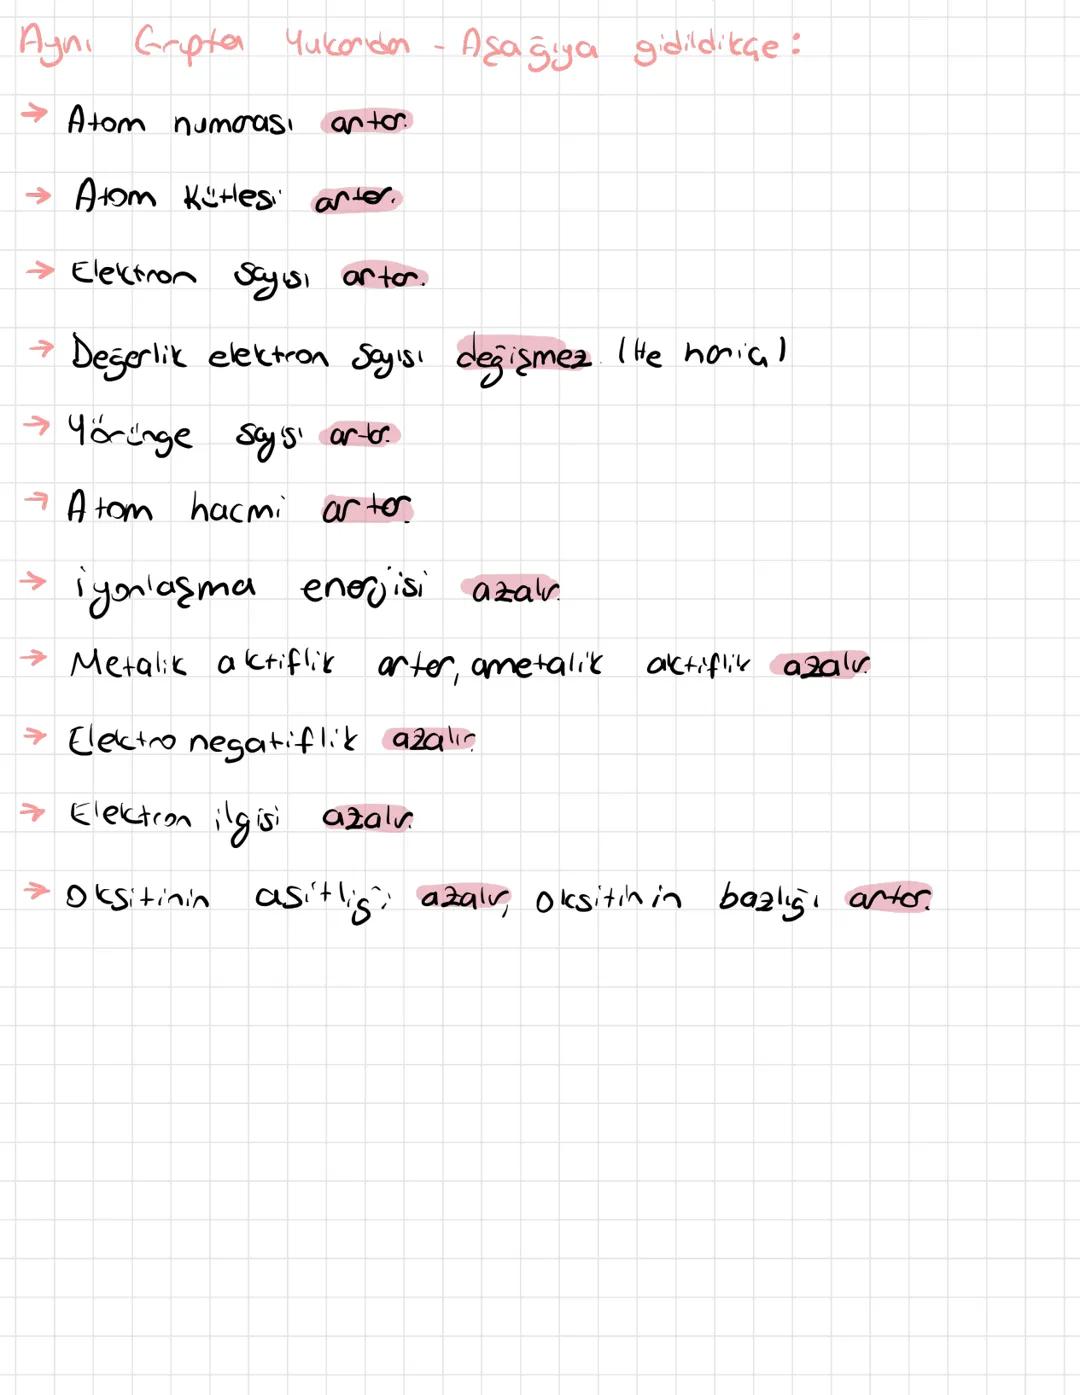 Aynı Grupta Yukarıdan - Aşağıya gidildikçe:
→ Atom numarası artar.
→ Atom Kütlesi artar.
→ Elektron sayısı artar.
→ Değerlik elektron sayısı değişmez. (He hariç)
→ Yörünge sayısı artar.
→ Atom hacmi artar.
→ İyonlaşma enerjisi azalır.
→ Metalik aktiflik artar, ametalik aktiflik azalır.
→ Elektronegatiflik azalır.
→ Elektron ilgisi azalır.
→ Oksitinin asitliği azalır, oksitinin bazlığı artar.